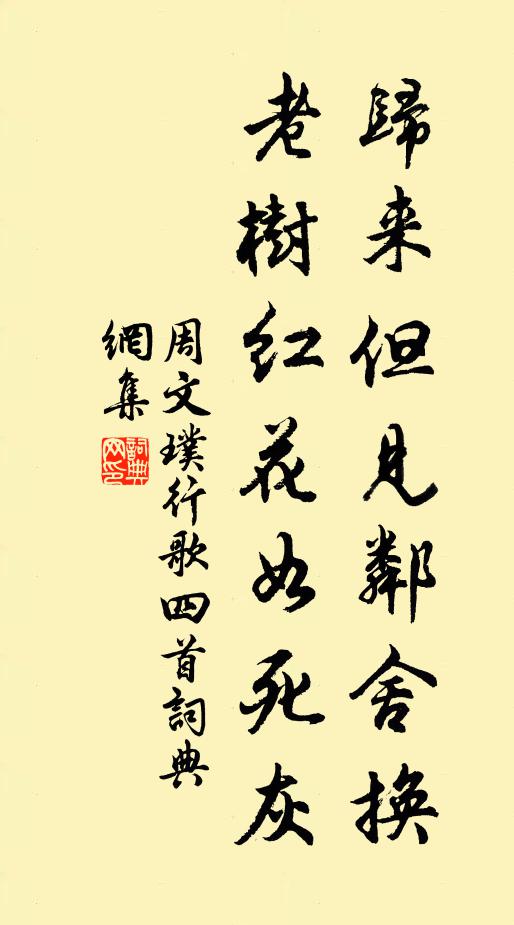 歸来但見鄰舍換
老樹紅花如死灰
周文璞行歌四首詞典
網集
詞典網印